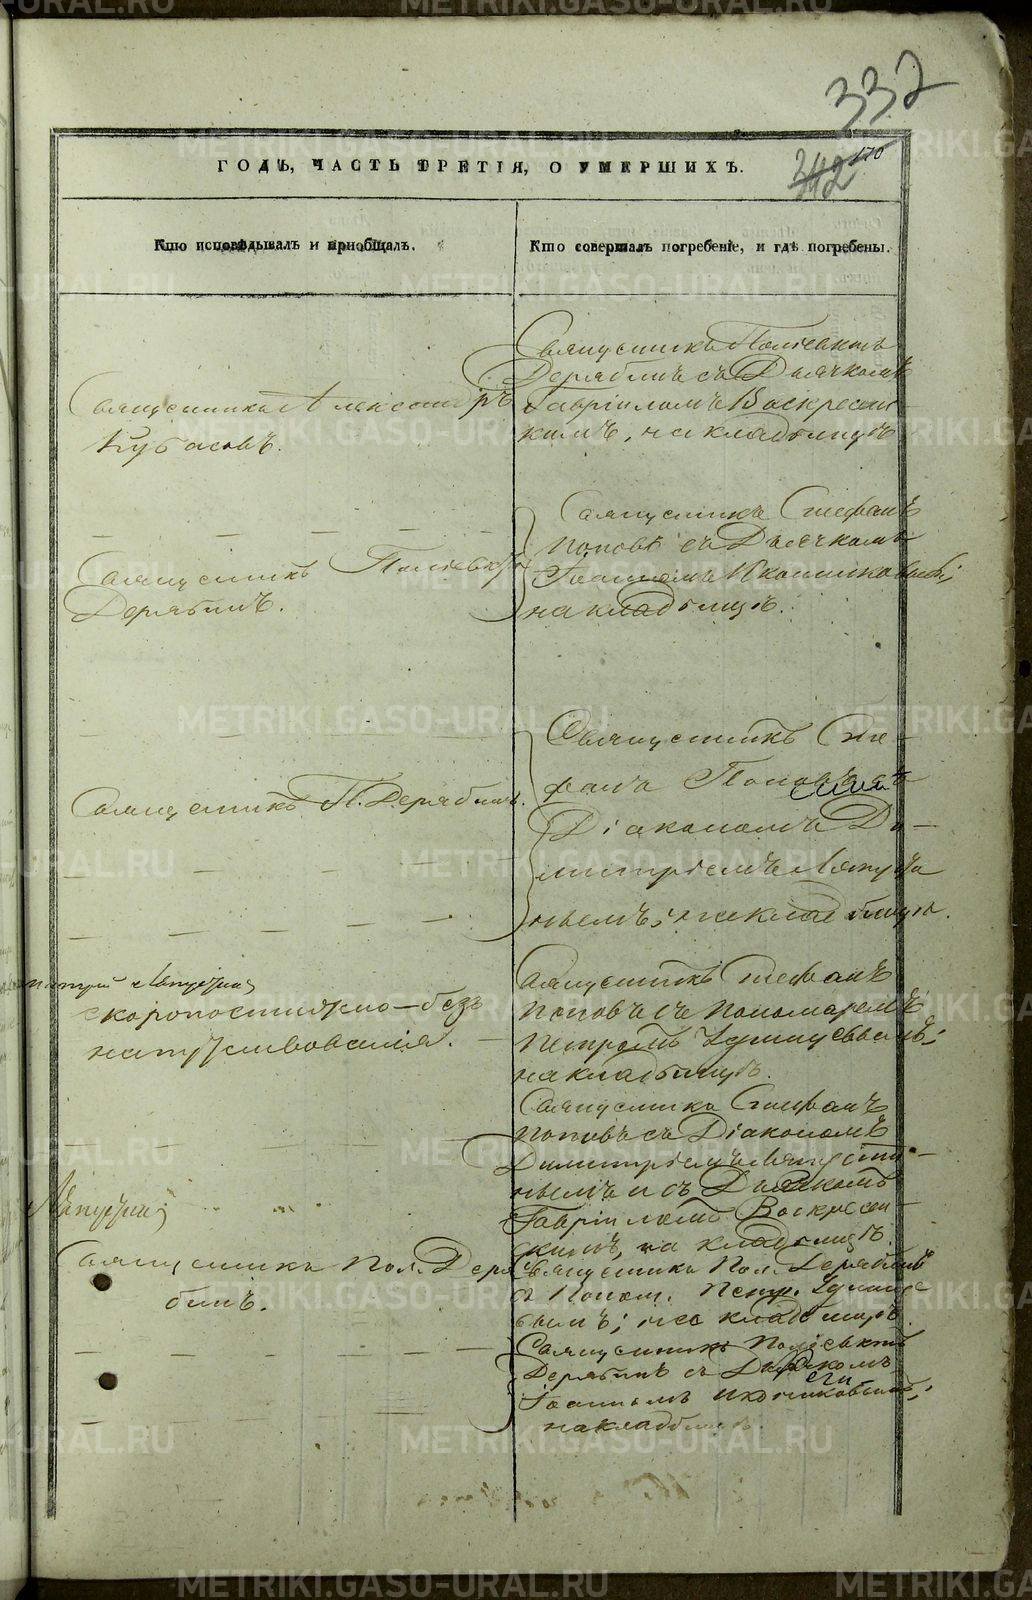 332
342
170
ГОДЪ, ЧАСТЬ ТРЕТІЯ, О УМЕРШИХЪ.
Кто исповѣдывалъ и пріобщалъ.
Кто совершалъ погребеніе, и гдѣ погребены.
Священникъ Полiевктъ
Дерябинъ съ Дьячкомъ
Гавріиломъ Воскресен-
скимъ, на кладбищѣ
Священникъ Александръ
Кубасовъ.
Священникъ Стефанъ
Поповъ съ Дьячкомъ
Іоанномъ
на кладбищѣ.
Священникъ Поліевктъ
Дерябинъ.
Священникъ Сте-
фанъ Поповъ съ
Діакономъ Ди-
митріемъ
на кладбищѣ.
Священникъ П. Дерябинъ.
скоропостижно - безъ
напутствованія.
Священникъ Стефанъ
Поповъ съ Пономаремъ
Петромъ
на кладбищѣ.
Священникъ Стефанъ
Поповъ съ Діакономъ
Димитріемъ
и съ Дьячкомъ
Гавріиломъ Воскресен-
скимъ, на кладбищѣ.
Священникъ Пол. Деря
бинъ.
Священникъ Пол. Дерябинъ
съ Поном. Петр.
на кладбищѣ.
Священникъ Поліевктъ
Дерябинъ съ Дьячкомъ
Іоанномъ
на кладбищѣ
METRIKI.GASO-URAL.RU